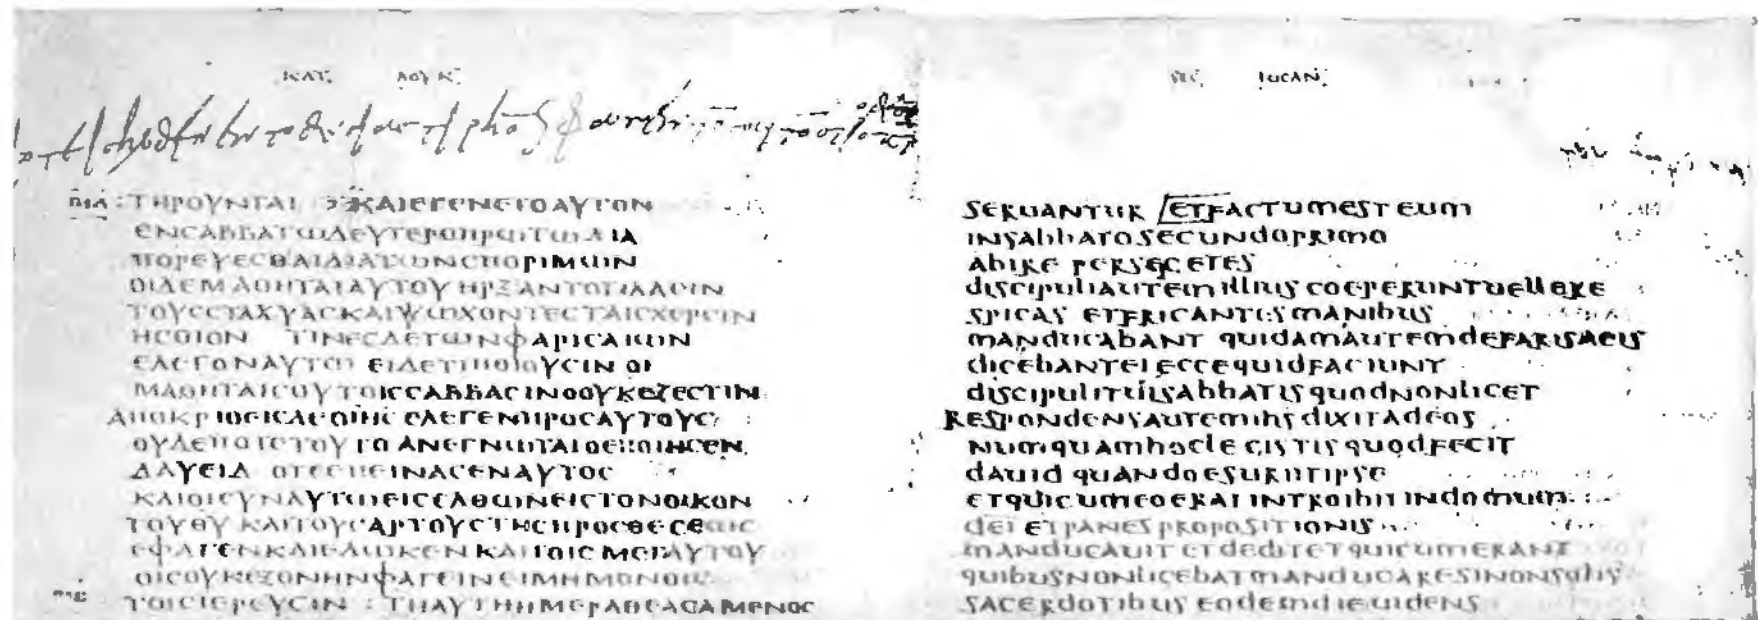 ΚΑΤ ΛΟΥΚ
ΤΗΡΟΥΝΤΑΙ ΚΑΙΕΓΕΝΕΤΟΑΥΤΟΝ
ΕΝΣΑΒΒΑΤΩΔΕΥΤΕΡΟΠΡΩΤΩΔΙΑ
ΠΟΡΕΥΕΣΘΑΙΔΙΑΤΩΝΣΠΟΡΙΜΩΝ
ΟΙΔΕΜΑΘΗΤΑΙΑΥΤΟΥΗΡΞΑΝΤΟΤΙΛΛΕΙΝ
ΤΟΥΣΣΤΑΧΥΑΣΚΑΙΨΩΧΟΝΤΕΣΤΑΙΣΧΕΡΣΙΝ
ΗΣΘΙΟΝ ΤΙΝΕΣΔΕΤΩΝΦΑΡΙΣΑΙΩΝ
ΕΛΕΓΟΝΑΥΤΩ ΕΙΔΕΤΙΠΟΙΟΥΣΙΝ ΟΙ
ΜΑΘΗΤΑΙΣΟΥΤΟΙΣΣΑΒΒΑΣΙΝΟΟΥΚΕΞΕΣΤΙΝ
ΑΠΟΚΡΙΘΕΙΣΔΕΟΙΗΣ ΕΛΕΓΕΝΠΡΟΣΑΥΤΟΥΣ
ΟΥΔΕΠΟΤΕΤΟΥΤΟΑΝΕΓΝΩΤΑΙΟΕΠΟΙΗΣΕΝ
ΔΑΥΕΙΔ ΟΤΕΕΠΕΙΝΑΣΕΝΑΥΤΟΣ
ΚΑΙΟΙΣΥΝΑΥΤΩΕΙΣΕΛΘΩΝΕΙΣΤΟΝΟΙΚΟΝ
ΤΟΥΘΥ ΚΑΙΤΟΥΣΑΡΤΟΥΣΤΗΣΠΡΟΣΘΕΣΕΩΣ
ΕΦΑΓΕΝΚΑΙΕΔΩΚΕΝ ΚΑΙΤΟΙΣ ΜΕΤΑΥΤΟΥ
ΟΙΣΟΥΚΕΞΟΝΗΝΦΑΓΕΙΝΕΙΜΗΜΟΝΟΙΣ
ΤΟΙΣΙΕΡΕΥΣΙΝ : ΤΗΑΥΤΗΗΜΕΡΑΘΕΑΣΑΜΕΝΟΣ
SEC LUCAN
SERUANTUR ETFACTUMESTEUM
INSABBATOSECUNDOPRIMO
ABIRE PERSEGETES
DISCIPULIAUTEMILLIUSCOEPERUNTUELLERE
SPICAS ETFRICANTESMANIBUS
MANDUCABANT QUIDAMAUTEMDEFARISAEIS
DICEBANTEI ECCEQUIDFACIUNT
DISCIPULITUISABBATISQUODNONLICET
RESPONDENSAUTEMIHSDIXITADEOS
NUMQUAMHOCLEGISTISQUODFECIT
DAUID QUANDOESURIITIPSE
ETQUICUMEOERAT INTROIBIT INDOMUM
DEI ETPANESPROPOSITIONIS
MANDUCAUIT ETDEDITETQUICUMERANT
QUIBUSNONLICEBATMANDUCARESINONSOLIS
SACERDOTIBUS EODEMDIEUIDENS